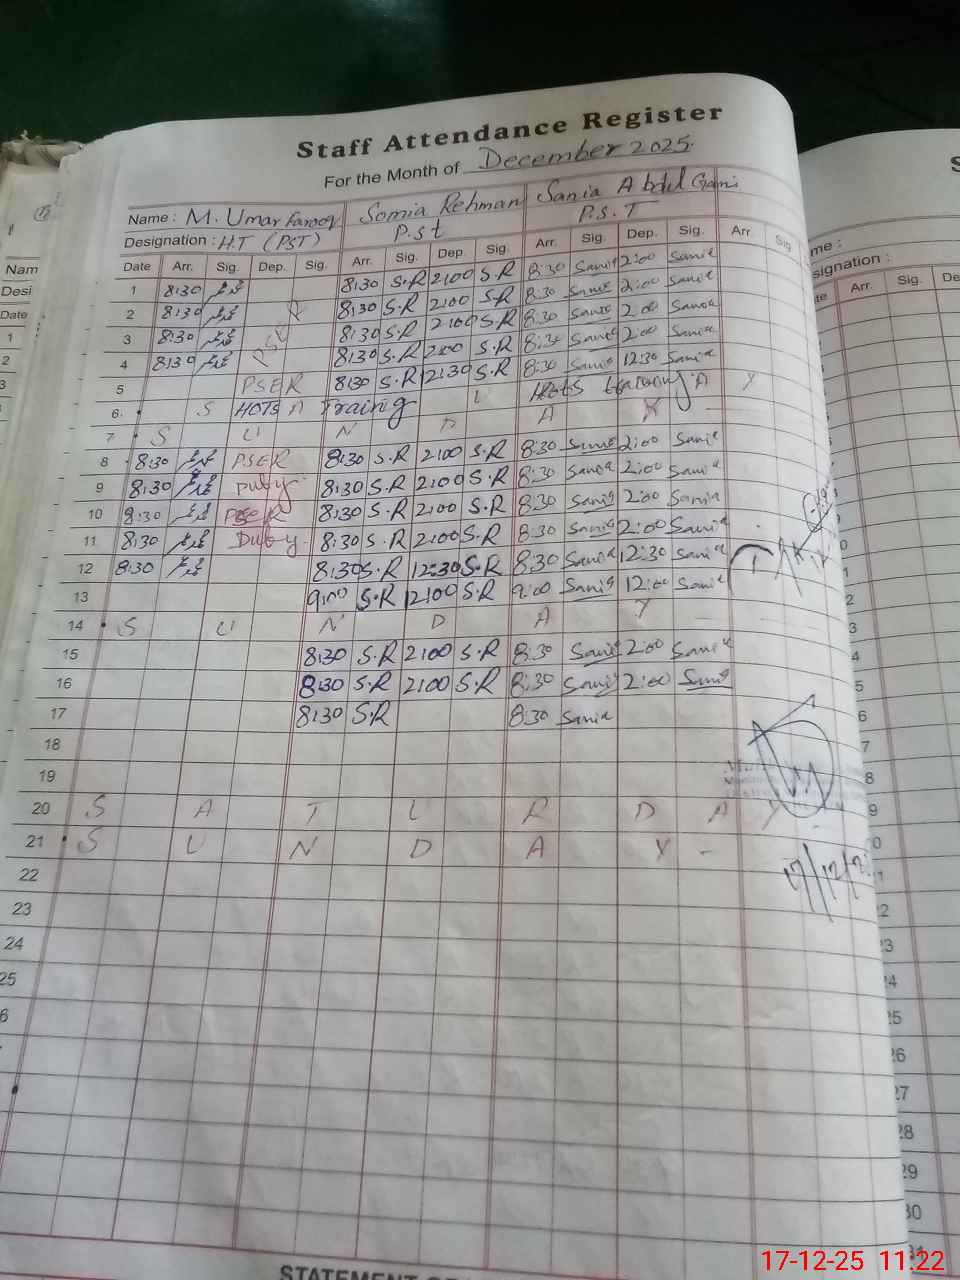 Staff Attendance Register
For the Month of December 2025.
Name : M. Umar Farooq Somia Rehman Sania Abdul Gani
Designation : H.T (PST) P.st P.S.T
Date Arr. Sig. Dep. Sig. Arr. Sig. Dep. Sig. Arr. Sig. Dep. Sig. Arr. Sig
1 8:30 8:30 S.R 2:00 S.R 8:30 Sania 2:00 Sania
2 8:30 8:30 S.R 2:00 S.R 8:30 Sania 2:00 Sania
3 8:30 8:30 S.R 2:00 S.R 8:30 Sania 2:00 Sania
4 8:30 8:30 S.R 2:00 S.R 8:30 Sania 2:00 Sania
5 PSER 8:30 S.R 12:30 S.R 8:30 Sania 12:30 Sania
6 S A HOTs Training U Hots training A Y
7 S U N D A Y
8 8:30 PSER 8:30 S.R 2:00 S.R 8:30 Sania 2:00 Sania
9 8:30 Duty 8:30 S.R 2:00 S.R 8:30 Sania 2:00 Sania
10 8:30 PSER 8:30 S.R 2:00 S.R 8:30 Sania 2:00 Sania
11 8:30 Duty 8:30 S.R 2:00 S.R 8:30 Sania 2:00 Sania
12 8:30 8:30 S.R 12:30 S.R 8:30 Sania 12:30 Sania
13 9:00 S.R 12:00 S.R 9:00 Sania 12:00 Sania
14 S U N D A Y
15 8:30 S.R 2:00 S.R 8:30 Sania 2:00 Sania
16 8:30 S.R 2:00 S.R 8:30 Sania 2:00 Sania
17 8:30 S.R 8:30 Sania
18
19
20 S A T U R D A Y
21 S U N D A Y -
22
23
24
25
17/12/2
17-12-25 11:22